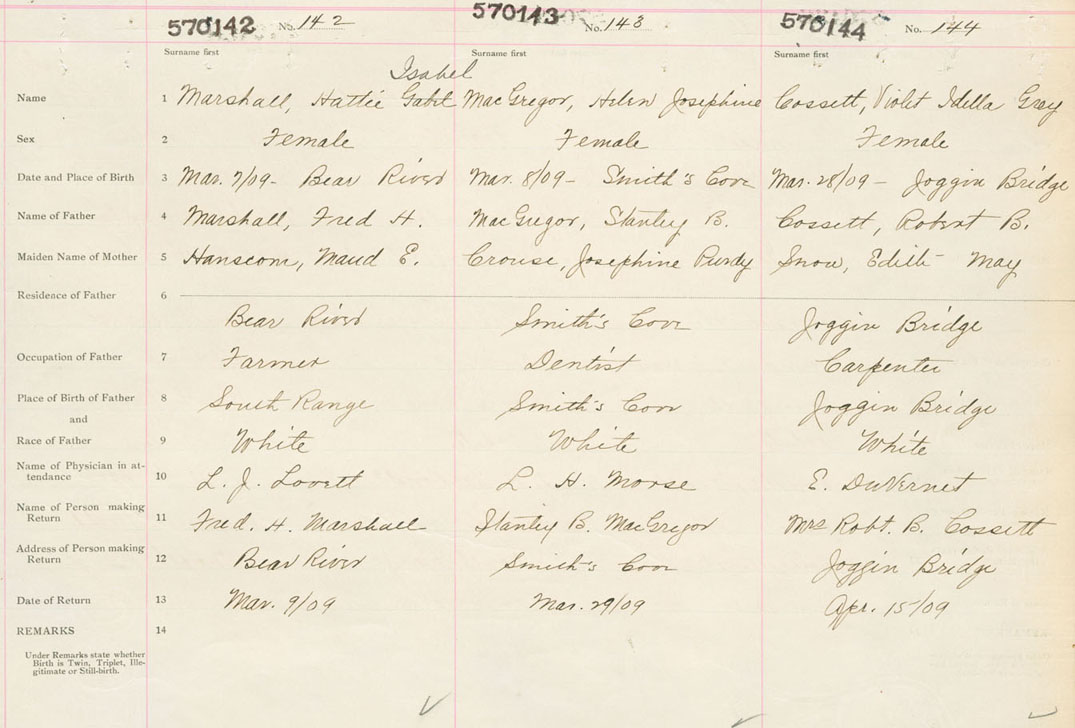 570142 No. 142 570143 No. 143 570144 No. 144
Surname first Surname first Surname first
Isabel
Name 1 Marshall, Hattie MacGregor, Helen Josephine Cossett, Violet Idella Gray
Sex 2 Female Female Female
Date and Place of Birth 3 Mar. 7/09- Bear River Mar. 8/09- Smith's Cove Mar. 28/09- Joggin Bridge
Name of Father 4 Marshall, Fred H. MacGregor, Stanley B. Cossett, Robert B.
Maiden Name of Mother 5 Hanscom, Maud E. Crouse, Josephine Purdy Snow, Edith May
Residence of Father 6
Bear River Smith's Cove Joggin Bridge
Occupation of Father 7 Farmer Dentist Carpenter
Place of Birth of Father 8 South Range Smith's Cove Joggin Bridge
and
Race of Father 9 White White White
Name of Physician in at-
tendance 10 L. J. Lovett L. H. Morse E. DuVernet
Name of Person making
Return 11 Fred. H. Marshall Stanley B. MacGregor Mrs Robt. B. Cossett
Address of Person making
Return 12 Bear River Smith's Cove Joggin Bridge
Date of Return 13 Mar. 9/09 Mar. 29/09 Apr. 15/09
REMARKS 14
Under Remarks state whether
Birth is Twin, Triplet, Ille-
gitimate or Still-birth.